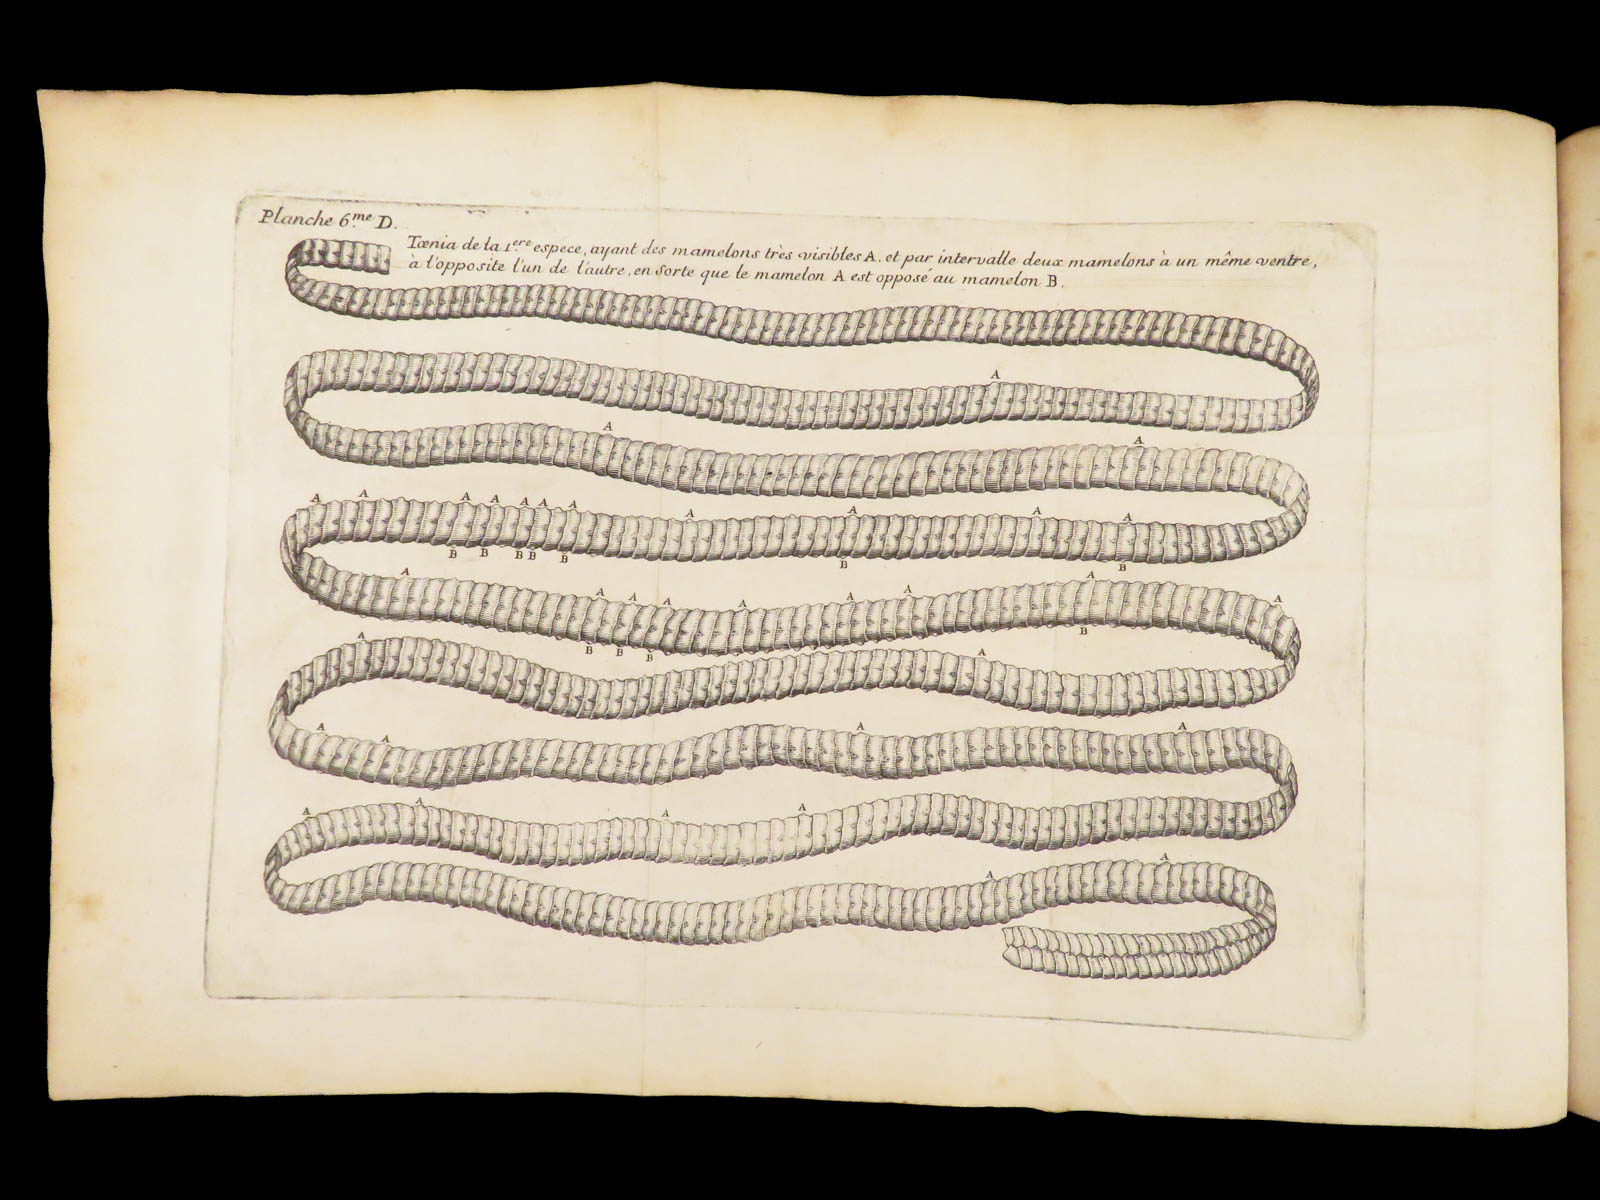 Planche 6.me D.
Tœnia de la 1.ere espece, ayant des mamelons très visibles A. et par intervalle deux mamelons à un même ventre,
à l'opposite l'un de l'autre, en sorte que le mamelon A est opposé au mamelon B.
A
A A
A A A A A A A A A A A
B B B B B B B
A A A A A A A A A
B B B B
A A
A A A A
A A A A
A A